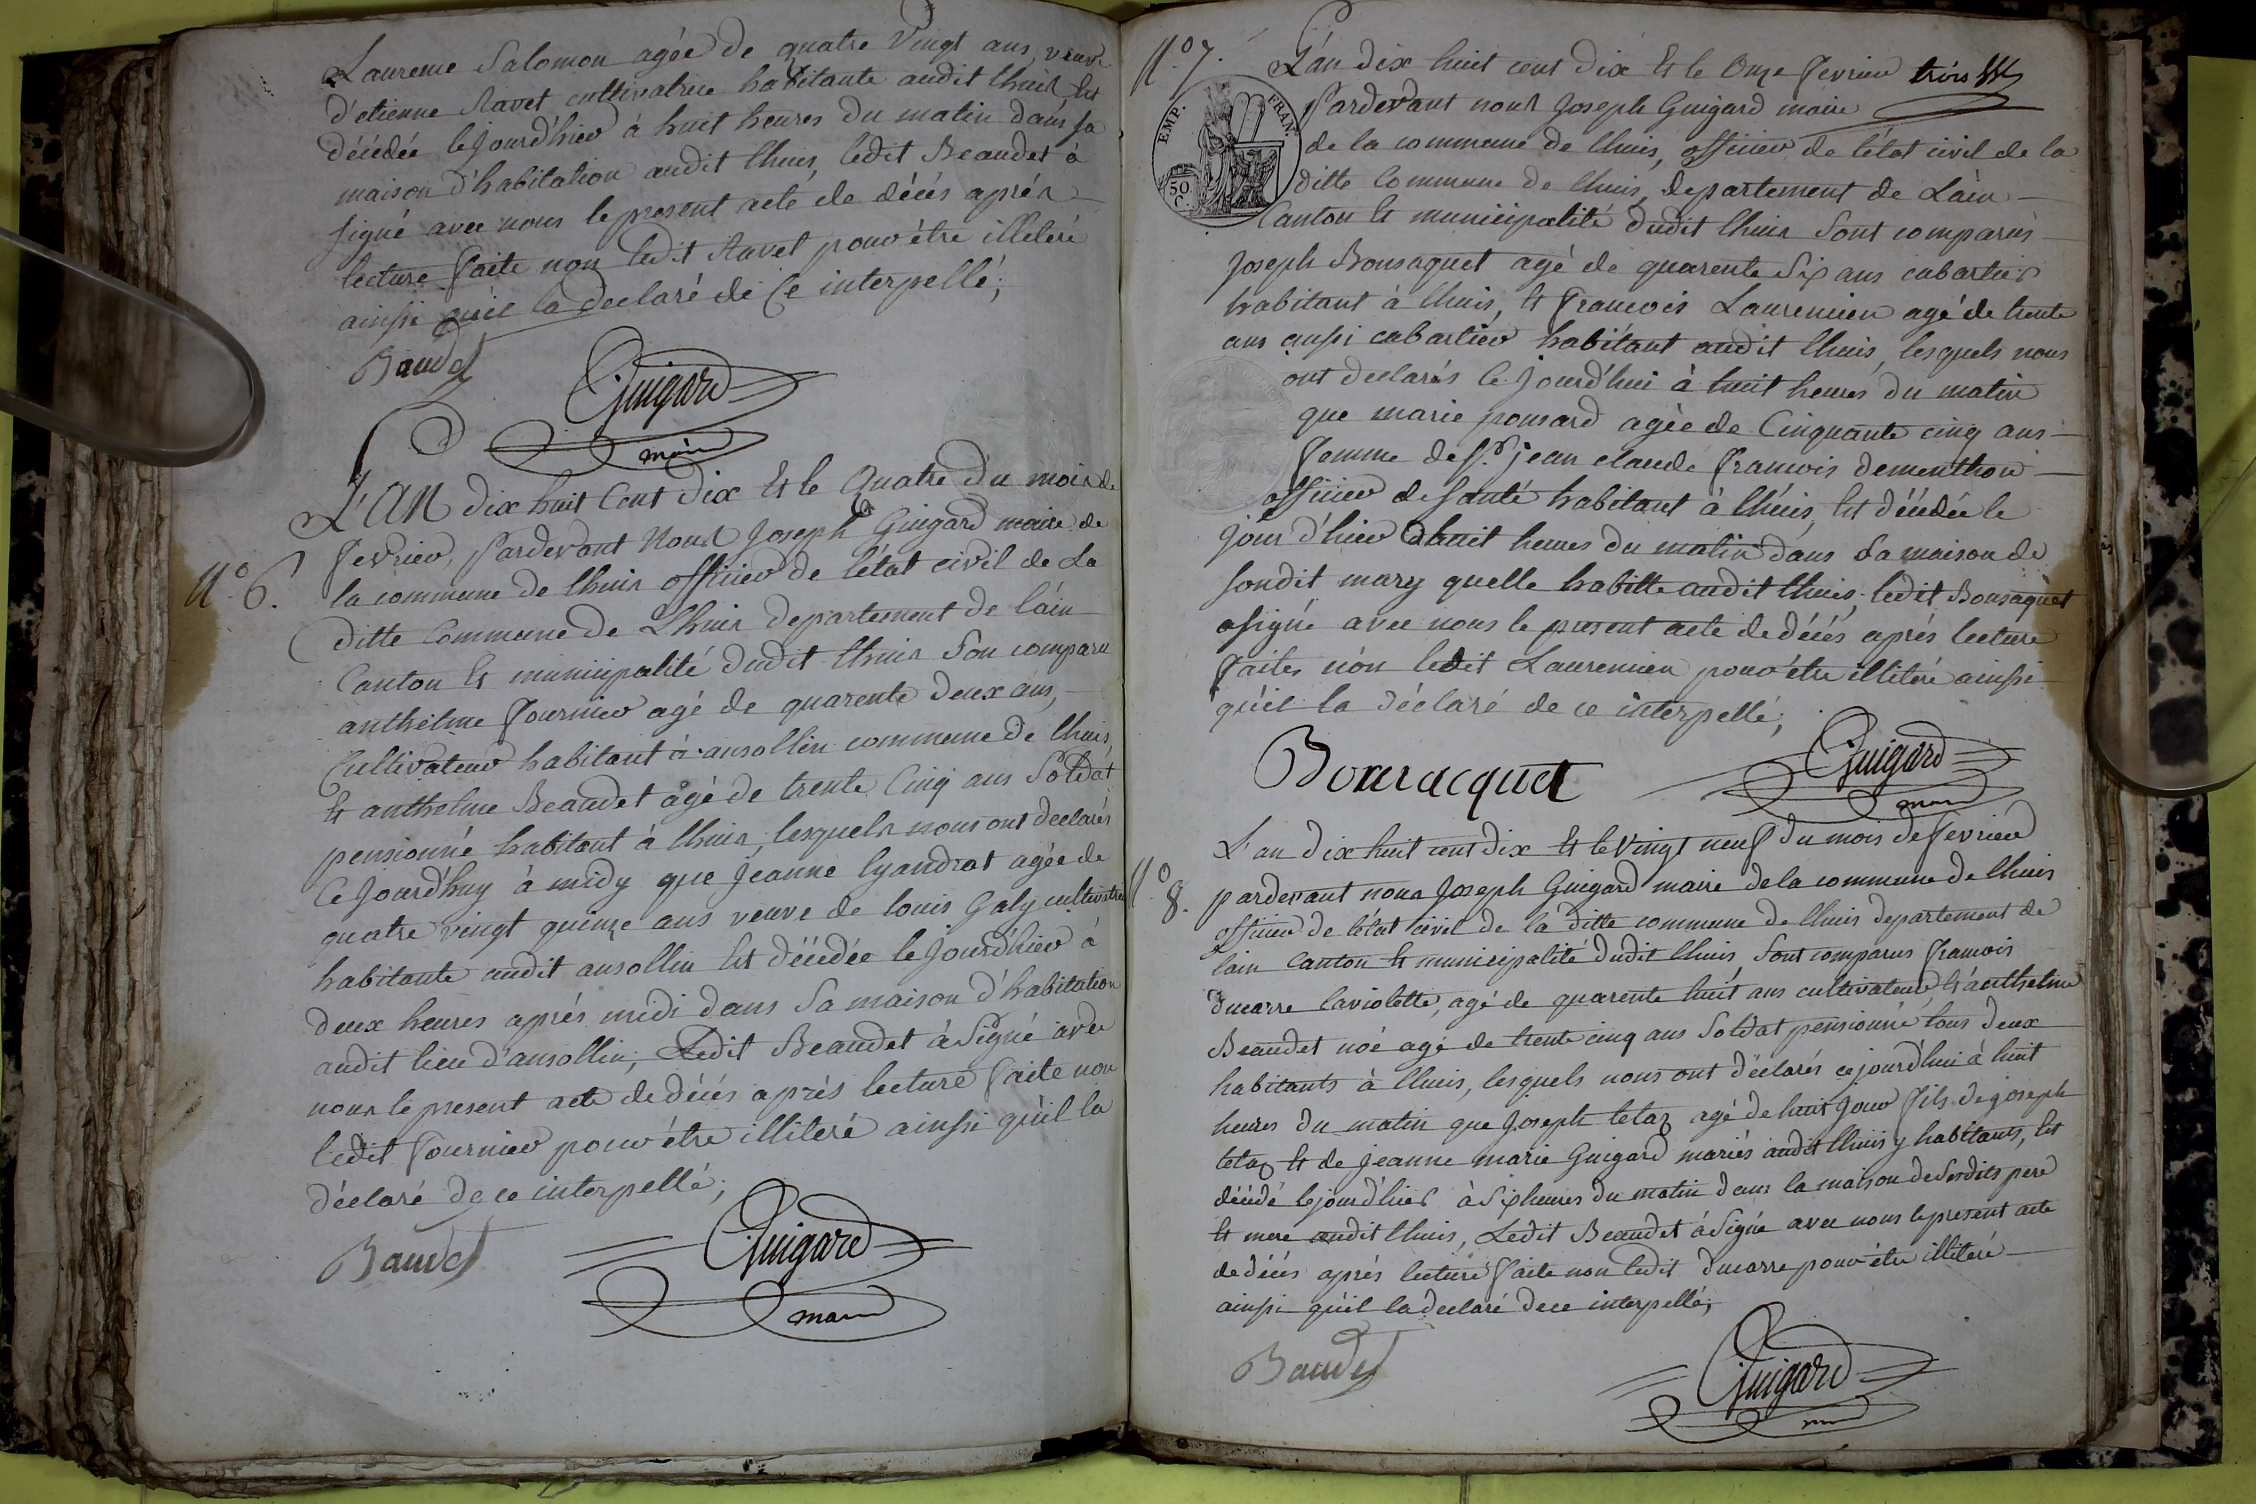 Laurence Salomon agée de quatre Vingt ans, veuve
d'etienne Ravet cultivatrice habitante audit lhuis Est
décédée le jourd'hier à huit heures du matin dans sa
maison d'habitation audit lhuis, ledit Beaudet à
signé avec nous le present acte de décés aprés
lecture faite non ledit Ravet pour être illeteré
ainsi qu'il la declaré de Ce interpellé;
Baudet
Guigard
maire
L'AN dix huit Cent dix Et le Quatre du mois de
fevrier, Pardevant Nous Joseph Guigard maire de
N.o 6.
la commune de lhuis officier de l'état civil de La
ditte Commune de Lhuis departement de l'ain
Canton Et municipalité dudit lhuis Son comparu
anthelme fournier agé de quarente deux ans,
Cultivateur habitant à ansollin commune de lhuis,
Et anthelme Beaudet agé de trente Cinq ans Soldat
pensionné habitant à lhuis, lesquels nous ont declarés
Ce Jourd'huy à midy que Jeanne lyandrat agée de
quatre vingt quinze ans veuve de louis Galy cultivatrice
habitante audit ansollin Est décédée le Jourd'hier à
deux heures aprés midi dans Sa maison d'habitation
audit lieu d'ansollin; Ledit Beaudet à Signé avec
nous le present acte de décés aprés lecture faite non
ledit fournier pour être illiteré ainsi qu'il la
déclaré de ce interpellé;
Baudet
Guigard
maire
N.o 7.
L'an dix huit cent dix Et le Onze fevrier trois
Pardevant nous Joseph Guigard maire
EMP. FRAN.
50 C.
de la commune de lhuis, officier de l'état civil de la
ditte Commune de lhuis, departement de L'ain
Canton Et municipalité dudit lhuis Sont comparus
Joseph Bonsaquet agé de quarente Six ans cabartier
habitant à lhuis, Et francois Laurencien agé de trente
ans aussi cabartier habitant audit lhuis, lesquels nous
ont declarés Ce jourd'hui à huit heures du matin
que marie ponsard agée de Cinquante cinq ans
femme de s.r jean claude francois dementhon
officier de santé habitant à lhuis, Est décédée le
jour d'hier à huit heures du matin dans la maison de
sondit mary quelle habitte audit lhuis, ledit Bonsaquet
a signé avec nous le present acte de décés aprés lecture
faite, non ledit Laurencien pour être illiteré ainsi
qu'il la déclaré de ce interpellé;
Bonsacquet
Guigard
maire
L'an dix huit cent dix Et le Vingt neuf du mois de fevrier
N.o 8.
pardevant nous Joseph Guigard maire de la commune de lhuis
officier de l'état civil de la ditte commune de lhuis departement de
lain Canton Et municipalité dudit lhuis, Sont comparus francois
ducarre laviolette, agé de quarente huit ans cultivateur, Et anthelme
Beaudet noé agé de trente cinq ans Soldat pensionné tous deux
habitants à lhuis, lesquels nous ont déclarés ce jourd'hui à huit
heures du matin que Joseph tetaz agé de huit Jour fils de joseph
tetaz Et de Jeanne marie Guigard mariés audit lhuis y habitants, Est
décédé le jourd'hier à Six heures du matin dans la maison de Sesdits pere
Et mere audit lhuis, Ledit Beaudet à Signé avec nous le present acte
de décés aprés lecture faite non ledit ducarre pour être illiteré
ainsi qu'il la declaré de ce interpellé;
Baudet
Guigard
maire